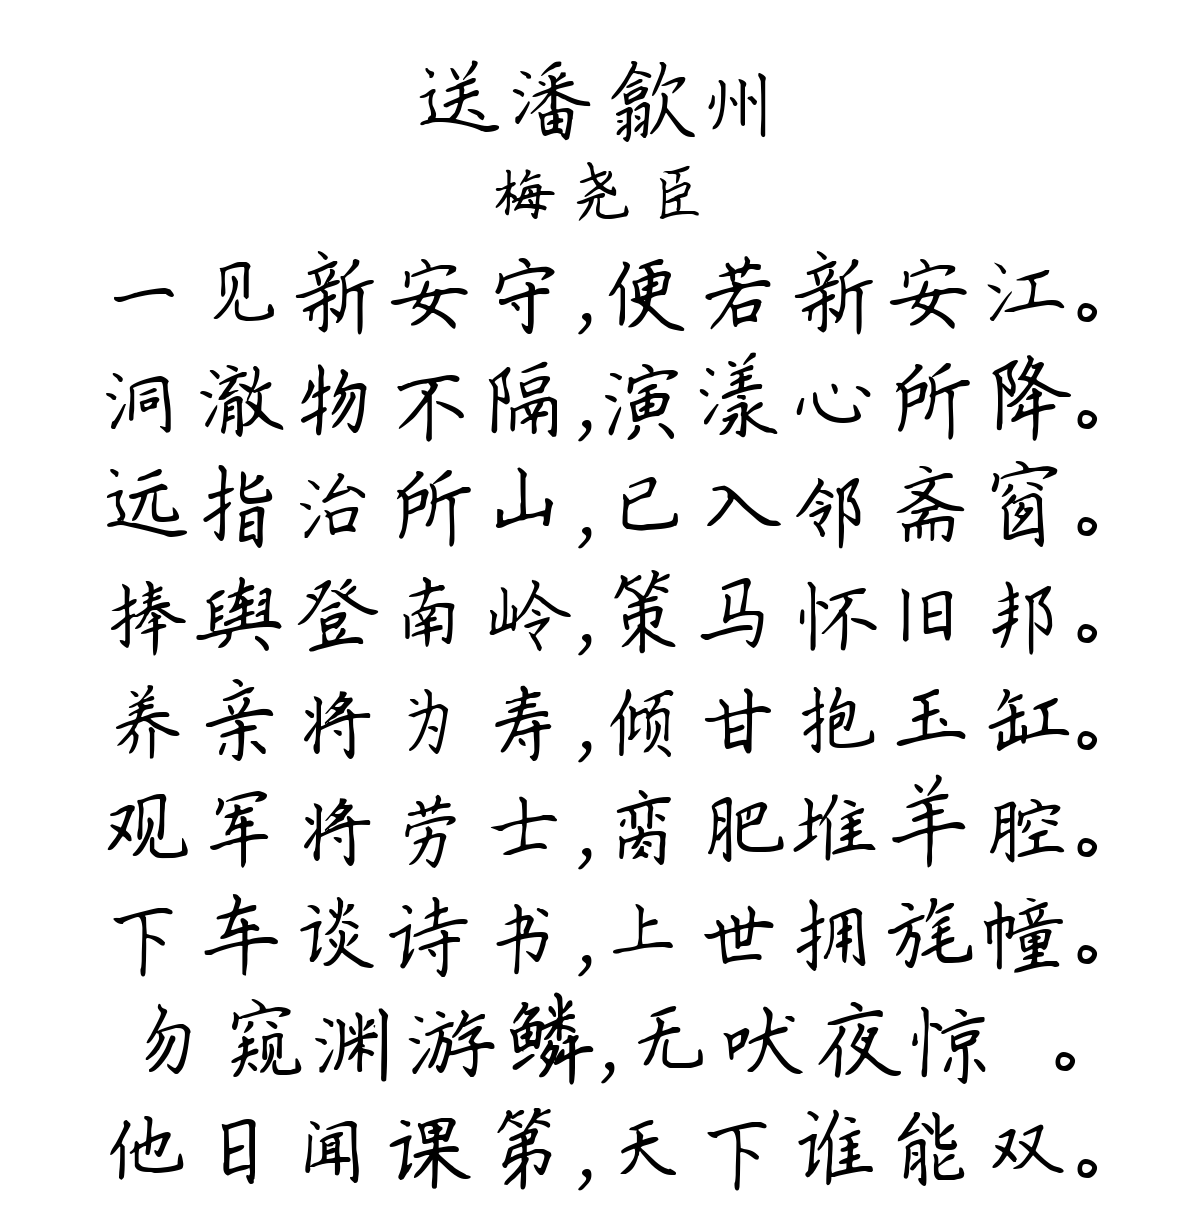 送潘歙州
梅尧臣
一见新安守,便若新安江。
洞澈物不隔,演漾心所降。
远指治所山,已入邻斋窗。
捧舆登南岭,策马怀旧邦。
养亲将为寿,倾甘抱玉缸。
观军将劳士,脔肥堆羊腔。
下车谈诗书,上世拥旄幢。
勿窥渊游鳞,无吠夜惊 。
他日闻课第,天下谁能双。